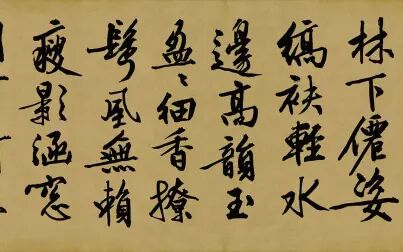 林下僊姿
縞袂輕水
邊高韻玉
盈〻細香撩
鬢風無賴
瘦影涵窓